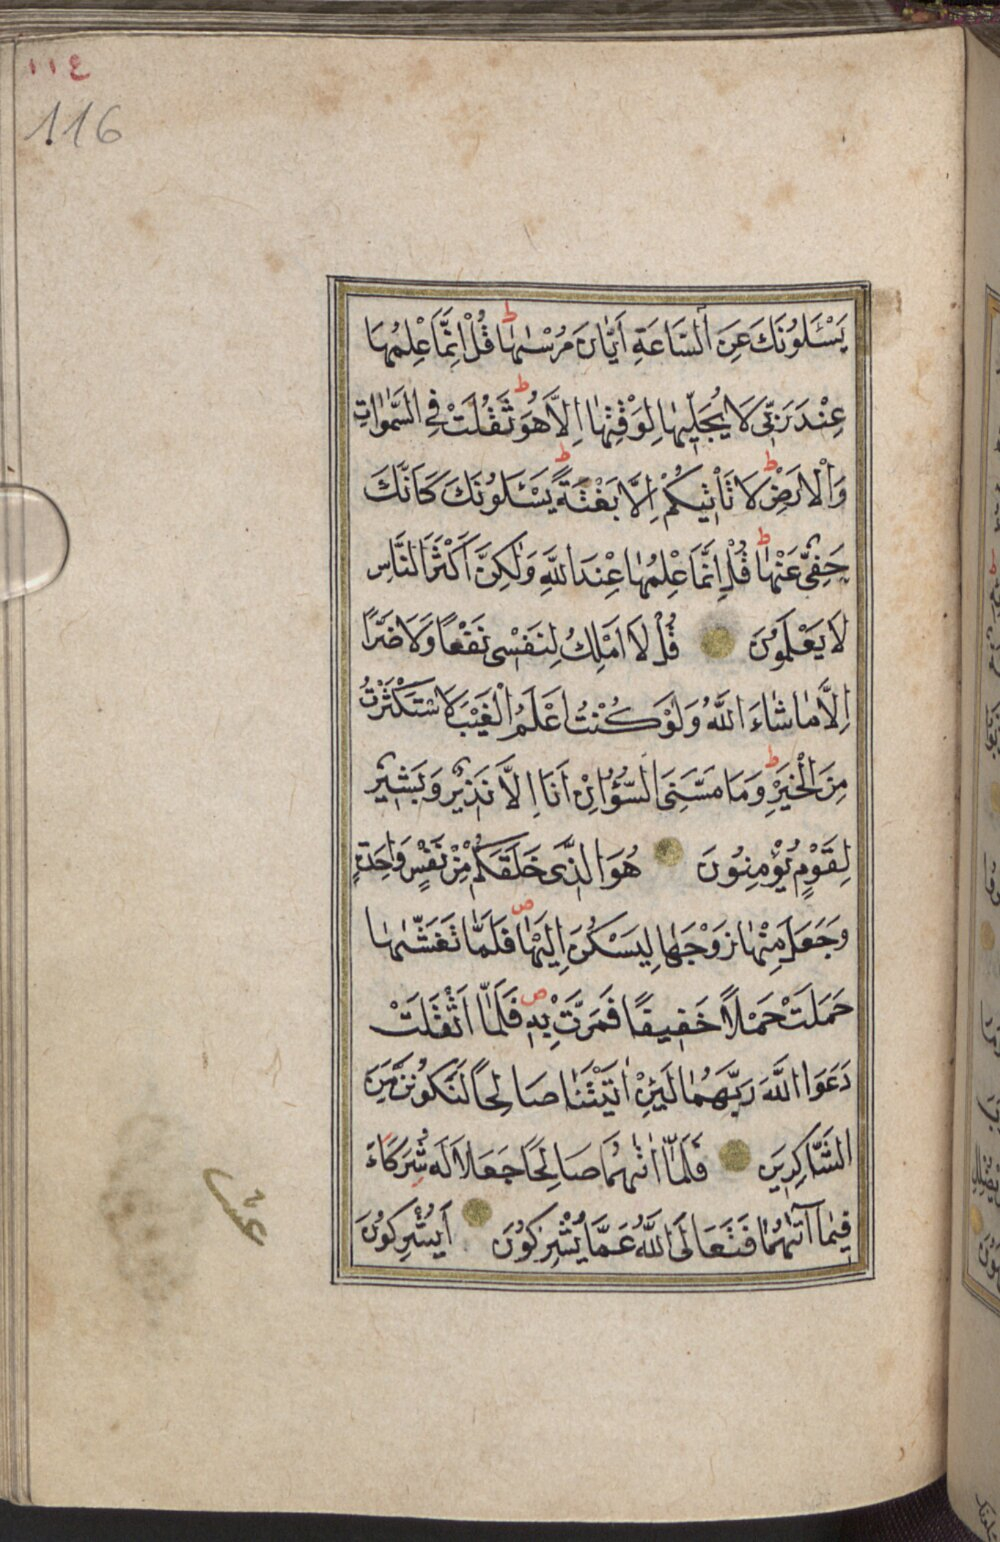 ١١٤
116
يَسْـَٔلُونَكَ عَنِ السَّاعَةِ اَيَّانَ مُرْسٰيهَاۜ ط قُلْ اِنَّمَا عِلْمُهَا
عِنْدَ رَبّ۪ى لَا يُجَلّ۪يهَا لِوَقْتِهَا اِلَّا هُوَ ط ثَقُلَتْ فِى السَّمٰوَاتِ
وَالْاَرْضِ ط لَا تَأْت۪يكُمْ اِلَّا بَغْتَةً ط يَسْـَٔلُونَكَ كَاَنَّكَ
حَفِىٌّ عَنْهَا ط قُلْ اِنَّمَا عِلْمُهَا عِنْدَ اللّٰهِ وَلٰكِنَّ اَكْثَرَ النَّاسِ
لَا يَعْلَمُونَ قُلْ لَا اَمْلِكُ لِنَفْس۪ى نَفْعًا وَلَا ضَرًّا
اِلَّا مَا شَاءَ اللّٰهُ وَلَوْ كُنْتُ اَعْلَمُ الْغَيْبَ لَاسْتَكْثَرْتُ
مِنَ الْخَيْرِ ط وَمَا مَسَّنِىَ السُّوءُ اِنْ اَنَا اِلَّا نَذ۪يرٌ وَبَش۪يرٌ
لِقَوْمٍ يُؤْمِنُونَ هُوَ الَّذ۪ى خَلَقَكُمْ مِنْ نَفْسٍ وَاحِدَةٍ
وَجَعَلَ مِنْهَا زَوْجَهَا لِيَسْكُنَ اِلَيْهَا ص فَلَمَّا تَغَشّٰيهَا
حَمَلَتْ حَمْلًا خَف۪يفًا فَمَرَّتْ بِه۪ ص فَلَمَّا اَثْقَلَتْ
دَعَوَا اللّٰهَ رَبَّهُمَا لَئِنْ اٰتَيْتَنَا صَالِحًا لَنَكُونَنَّ مِنَ
الشَّاكِر۪ينَ فَلَمَّا اٰتٰيهُمَا صَالِحًا جَعَلَا لَهُ شُرَكَاءَ
ف۪يمَا اٰتٰيهُمَا فَتَعَالَى اللّٰهُ عَمَّا يُشْرِكُونَ اَيُشْرِكُونَ
عشر